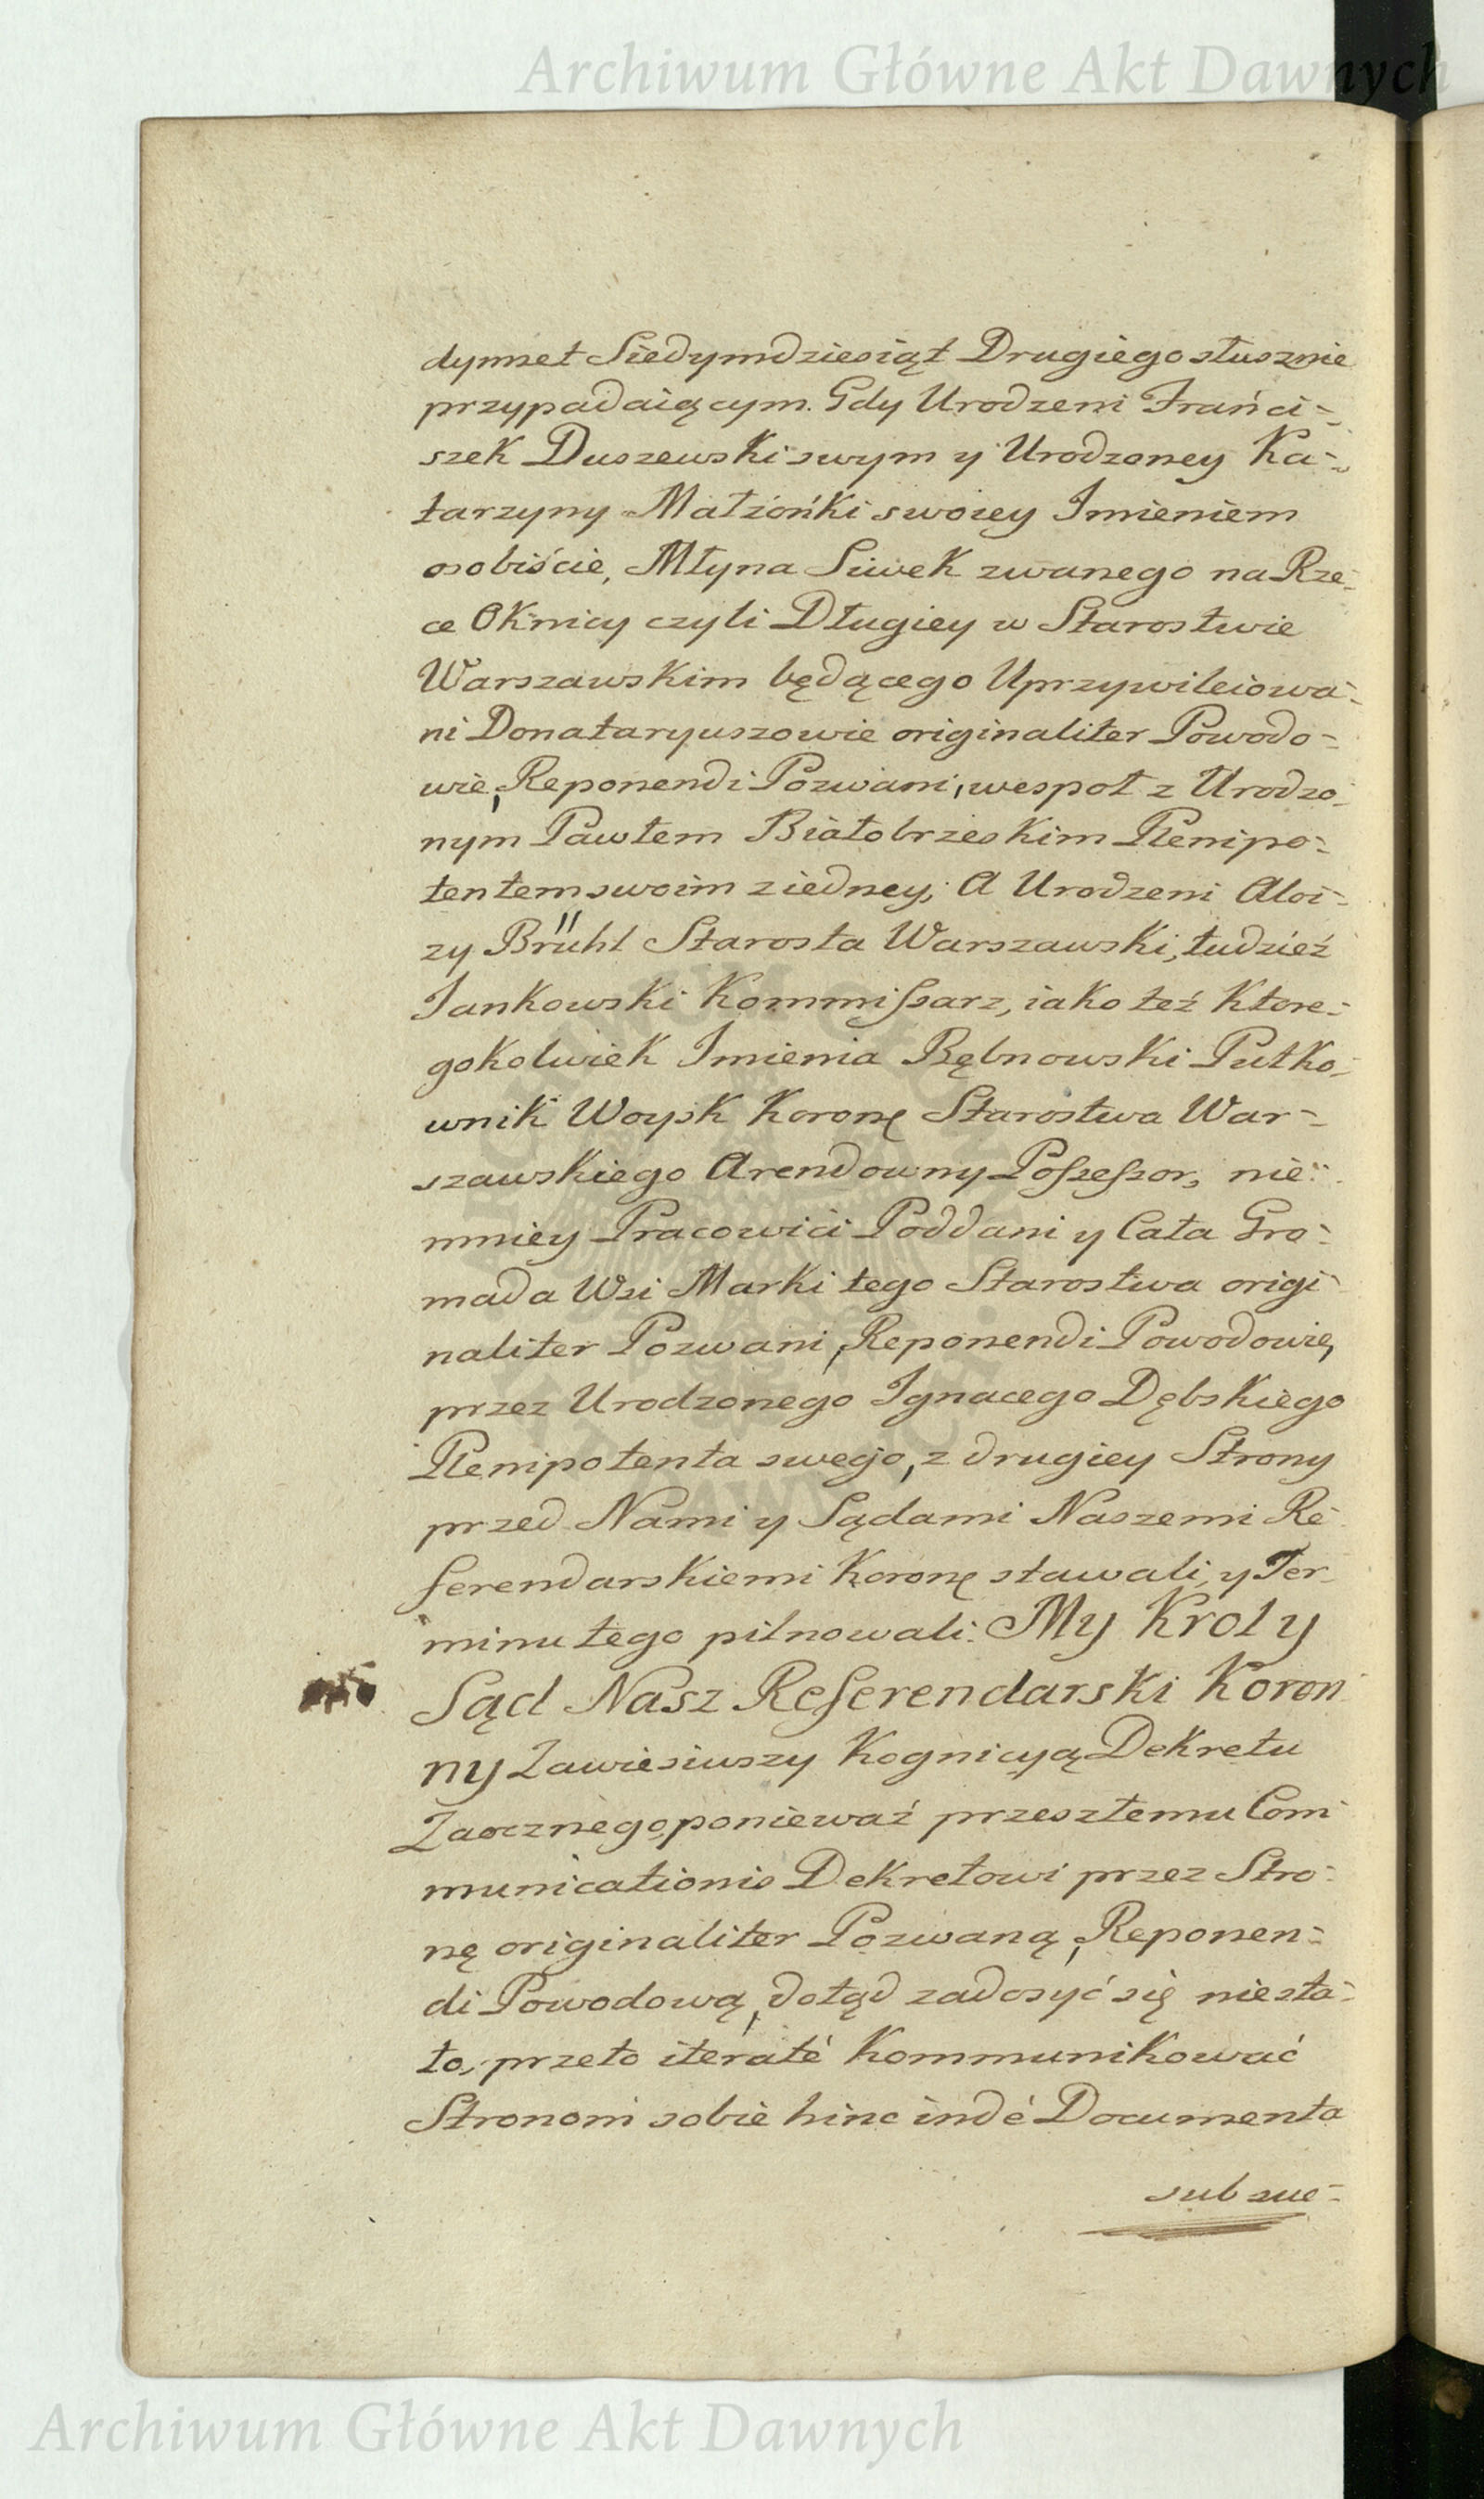 Archiwum Główne Akt Dawnych
dymset Siedymdziesiąt Drugiego słusznie
przypadaiącym. Gdy Urodzeni Frańci-
szek Duszewski swym y Urodzoney Ka-
tarzyny Małżońki swoiey Imieniem
osobiście, Młyna Siwek zwanego na Rze-
ce Oknicy czyli Długiey w Starostwie
Warszawskim będącego Uprzywileiowa-
ni Donataryuszowie originaliter Powodo-
wie, Reponendi Pozwani, wespoł z Urodzo-
nym Pawłem Białobrzeskim Plenipo-
tentem swoim z iedney; A Urodzeni Aloi-
zy Brühl Starosta Warszawski, tudzież
Jankowski Kommissarz, iako też ktore-
gokolwiek Imienia Bębnowski Pułko-
wnik Woysk Koronę Starostwa War-
szawskiego Arendowny Possessor, nie-
mniey Pracowici Poddani y Cała Gro-
mada Wsi Marki tego Starostwa origi-
naliter Pozwani, Reponendi Powodowie,
przez Urodzonego Ignacego Dębskiego
Plenipotenta swego, z drugiey Strony
przed Nami y Sądami Naszemi Re-
ferendarskiemi Koronę stawali, y Ter-
minu tego pilnowali. My Krol y
Sąd Nasz Referendarski Koron
ny Zawiesiuszy Kognicyą Dekretu
Zaocznego, ponieważ przeszłemu Com-
municationis Dekretowi przez Stro-
nę originaliter Pozwaną, Reponen-
di Powodową, dotąd zadosyć się niesta-
ło, przeto iteraté Kommunikować
Stronom sobie hinc indé Documenta
sub sue-
Archiwum Główne Akt Dawnych